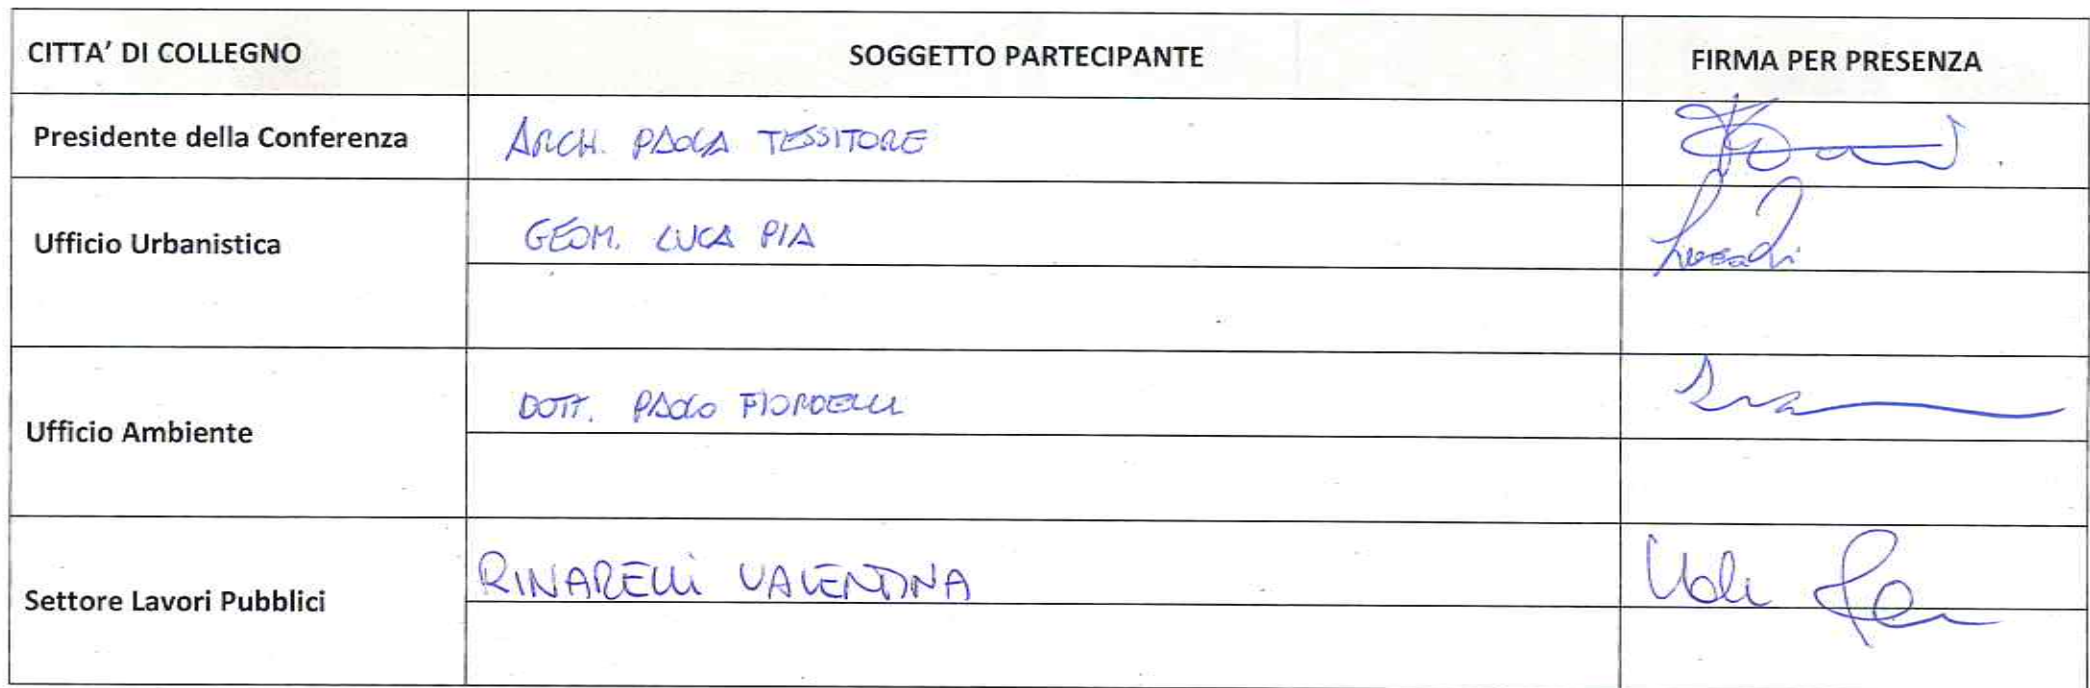 CITTA' DI COLLEGNO SOGGETTO PARTECIPANTE FIRMA PER PRESENZA
Presidente della Conferenza ARCH. PAOLA TESSITORE
Ufficio Urbanistica GEOM. LUCA PIA
Ufficio Ambiente DOTT. PAOLO FIORDELLI
Settore Lavori Pubblici RINARELLI VALENTINA